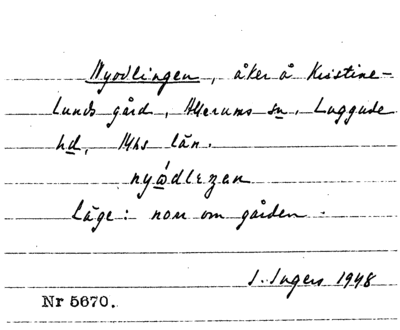 Nyodlingen, åker å Kristine-
lunds gård, Allerums sn, Luggude
hd, Mhs län.
nyódlezen
Läge: norr om gården.
I. Ingers 1948
Nr 5670.